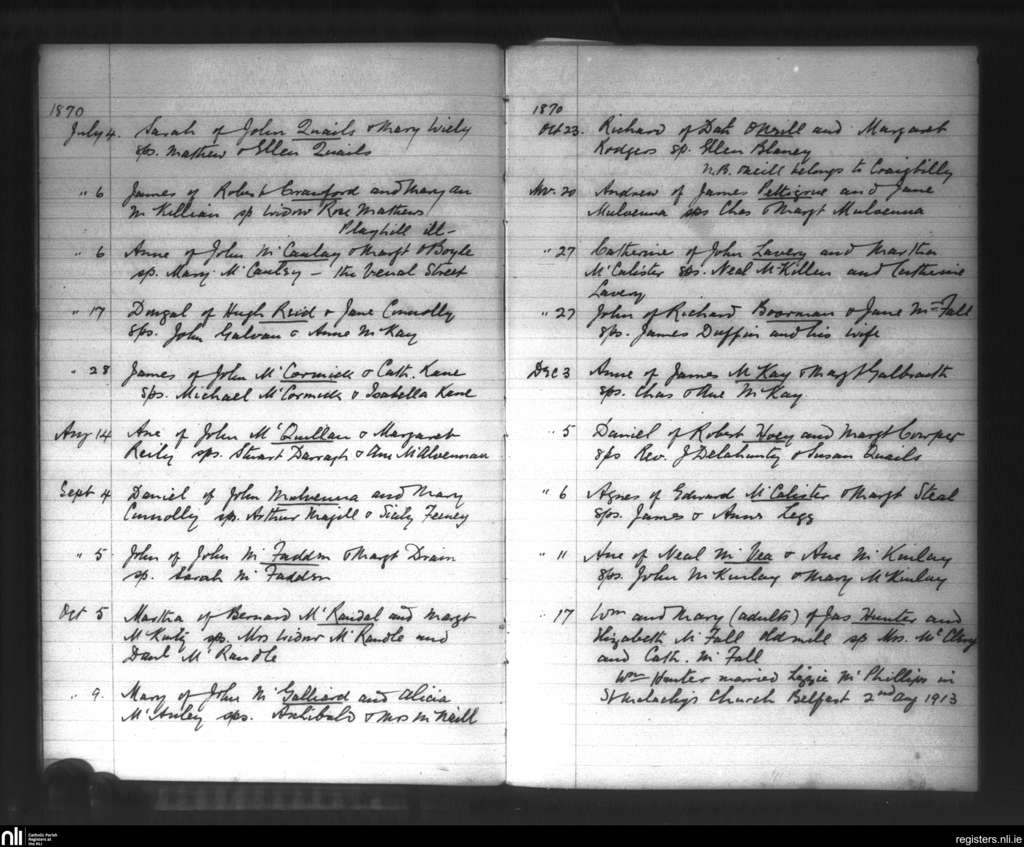 1870
July 4. Sarah of John Quails & Mary Wiely
sps. Mathew & Ellen Quails
" 6 James of Robert Crawford and Mary an
McKillian sp Widow Rose Mathews
Playhill ill-
" 6 Anne of John McCaulay & Margt O'Boyle
sp. Mary McCaulay - the Venal Street
" 17 Dougal of Hugh Reid & Jane Connolly
sps. John Galvan & Anne McKay
" 28 James of John McCormick & Cath. Kane
sps. Michael McCormick & Isabella Kane
Aug 14 Ane of John McQuillan & Margaret
Reily sps. Stuart Darragh & Ann McAlvennan
Sept 4 Daniel of John Mulvenna and Mary
Connolly sps. Arthur Magill & Sicily Feeney
" 5 John of John McFadden & Margt Drain
sp. Sarah McFadden
Oct 5 Martha of Bernard McRandal and Margt
McKinty sps. Mrs Widow McRandle and
Danl McRandle
" 9. Mary of John McGalliard and Alicia
McAuley sps. Antibald & Mrs McNeill
1870
Oct 23. Richard of Danl O'Neill and Margaret
Rodgers sp. Ellen Blaney
N.B. O'Neill belongs to Craigbilly
Nov. 20 Andrew of James Pettigrue and Jane
Mulvenna sps Chas & Margt Mulvenna
" 27 Catherine of John Lavery and Martha
McCalister sps. Neal McKillen and Catherine
Lavery
" 27 John of Richard Boorman & Jane McFall
sps. James Duffin and his wife
Dec 3 Anne of James McKay & Margt Galbraith
sps. Chas & Ane McKay
" 5 Daniel of Robert Hoey and Margt Cowper
sps Rev. J Delahunty & Susan Quails
" 6 Agnes of Edward McCalister & Margt Steal
sps. James & Anne Legg
" 11 Ane of Neal McVea & Ane McKinlay
sps. John McKinlay & Mary McKinlay
" 17 Wm and Mary (adults) of Jas Hunter and
Elizabeth McFall Old mill sp Mrs. McClery
and Cath. McFall
Wm Hunter married Lizzie McPhillips in
St Malachy's Church Belfast 2nd Aug 1913
nli
Catholic Parish
Registers at
the NLI
registers.nli.ie